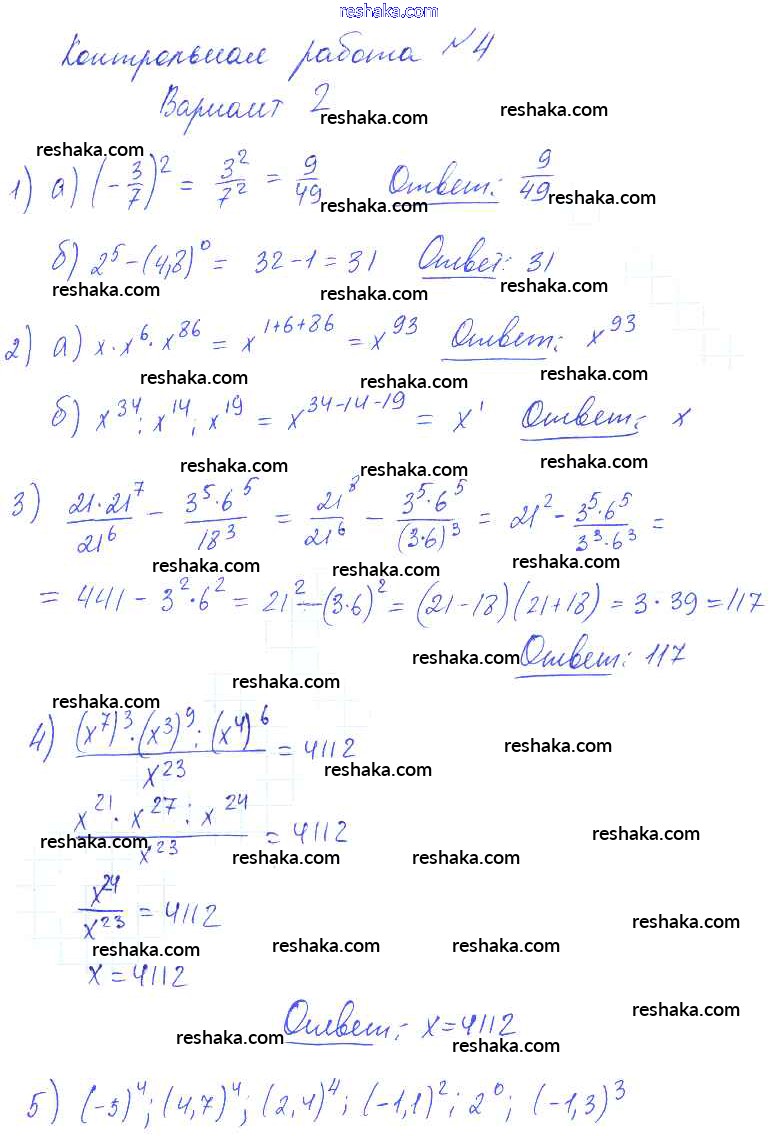 reshaka.com
Контрольная работа №4
Вариант 2
reshaka.com reshaka.com
reshaka.com
1) а) (-3/7)² = 3²/7² = 9/49 Ответ: 9/49
reshaka.com reshaka.com
б) 2⁵ - (4,8)⁰ = 32 - 1 = 31 Ответ: 31
reshaka.com reshaka.com reshaka.com
2) а) x · x⁶ · x⁸⁶ = x¹⁺⁶⁺⁸⁶ = x⁹³ Ответ: x⁹³
reshaka.com reshaka.com reshaka.com
б) x³⁴ : x¹⁴ : x¹⁹ = x³⁴⁻¹⁴⁻¹⁹ = x¹ Ответ: x
reshaka.com reshaka.com reshaka.com
3) (21·21⁷)/21⁶ - (3⁵·6⁵)/18³ = 21⁸/21⁶ - (3⁵·6⁵)/(3·6)³ = 21² - (3⁵·6⁵)/(3³·6³) =
reshaka.com reshaka.com reshaka.com
= 441 - 3²·6² = 21² - (3·6)² = (21-18)(21+18) = 3·39 = 117
reshaka.com Ответ: 117
reshaka.com reshaka.com
4) ((x⁷)³·(x³)⁹:(x⁴)⁶)/x²³ = 4112
reshaka.com reshaka.com
(x²¹·x²⁷:x²⁴)/x²³ = 4112
reshaka.com reshaka.com reshaka.com reshaka.com
x²⁴/x²³ = 4112
reshaka.com reshaka.com reshaka.com reshaka.com
x = 4112
reshaka.com
Ответ: x = 4112
reshaka.com reshaka.com
5) (-5)⁴; (4,7)⁴; (2,4)⁴; (-1,1)²; 2⁰; (-1,3)³